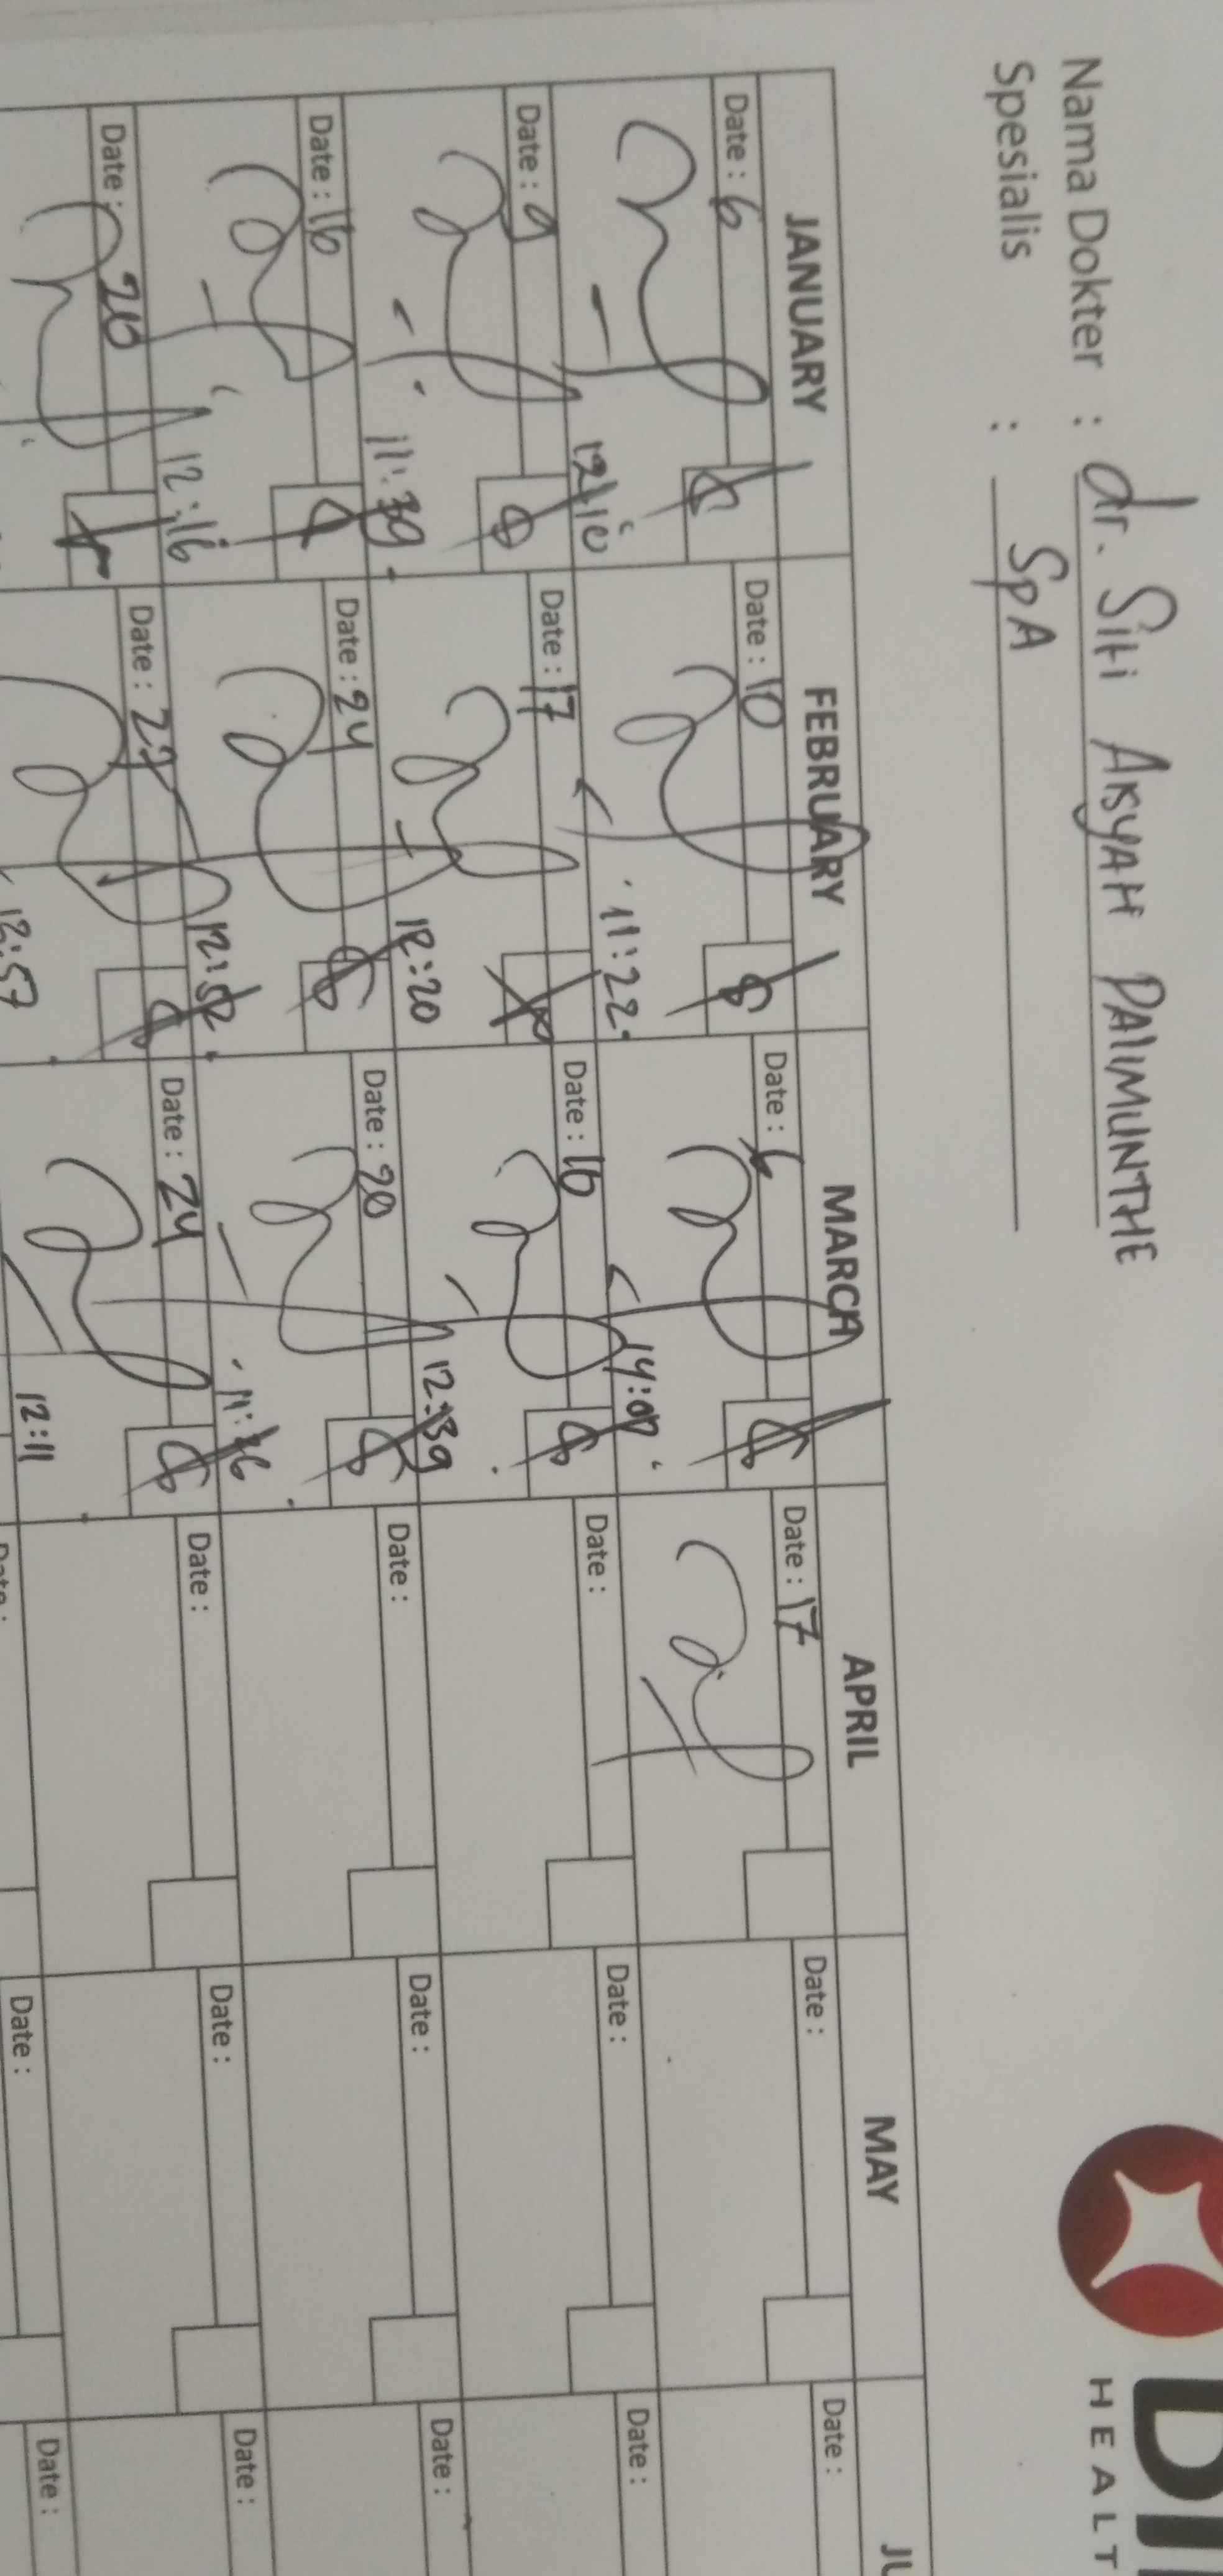 Nama Dokter : dr. Siti Aisyah DALIMUNTHE
Spesialis : SpA
HEALT
JANUARY FEBRUARY MARCH APRIL MAY JU
Date : 6 Date : 10 Date : 6 Date : 17 Date : Date :
12:10 11:22 14:07
Date : 9 Date : 17 Date : 16 Date : Date : Date :
11:39 12:20 12:39
Date : 16 Date : 24 Date : 20 Date : Date : Date :
12:16 12:52 11:36
Date : 20 Date : 27 Date : 24 Date : Date : Date :
12:57 12:11
Date : Date : Date :